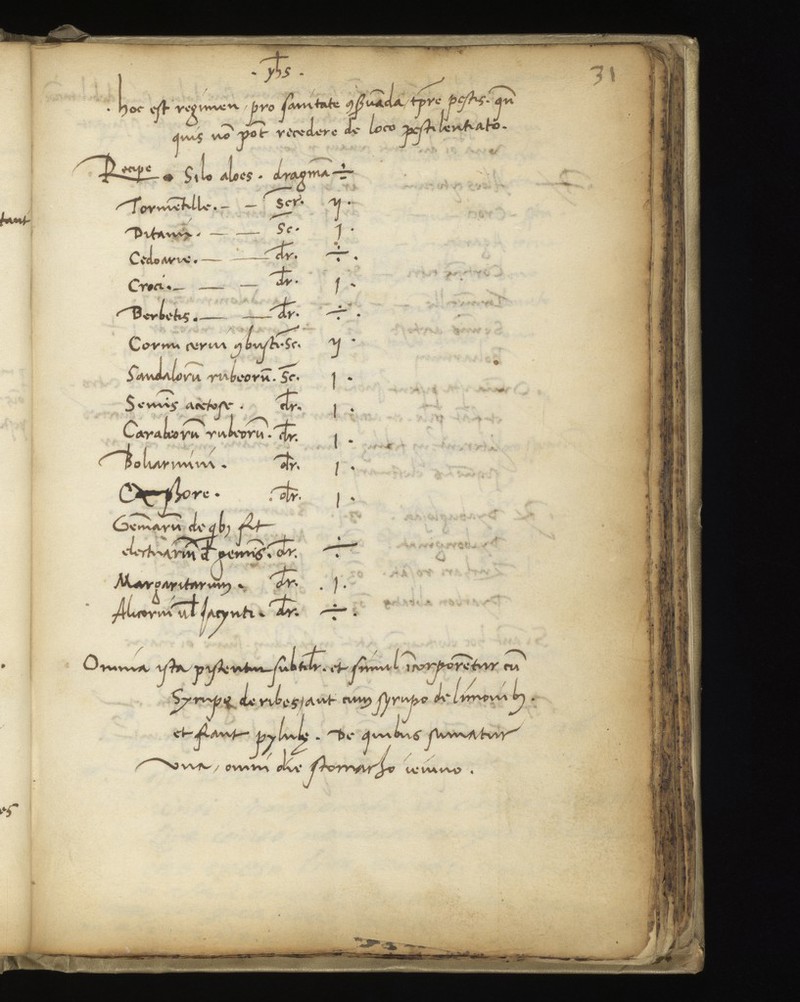 . yħs .
31
. hoc est regimen pro sanitate ꝯẜuāda tp̄re pestis. qn̄
quis nō pōt recedere de loco pestilentiato.
Recipe Silo aloes . dragmā ÷
Tormētille . — — Scr̄ . ij .
Ditami . — — Sc̄ . j .
Cedoarie . — — dr̄ . ÷ .
Croci . — — — dr̄ . 1 .
Berbetis . — — dr̄ . ÷ .
Cornu cerui ꝯbusti . Sc̄ . ij .
Sandalorū rubeorū . Sc̄ . 1 .
Semīs acetose . dr̄ . 1 .
Carabeorū rubeorū . dr̄ . 1 .
Boliarmini . dr̄ . 1 .
phore . dr̄ . 1 .
Gemarū de qibꝫ fit
electuariū d̄ gemis . dr̄ . ÷
Margaritarum . dr̄ . 1 .
Alicorni ul̄ Jacynti . dr̄ . ÷ .
Omnia ista pistentur subtilr̄ . et simul īcorporētur cū
Syrupo de ribes / aut cum syrupo de limonibꝫ .
et fiant pylulę . De quibus sumatur
vna / omni die stomacho ieiuno .
tant
es